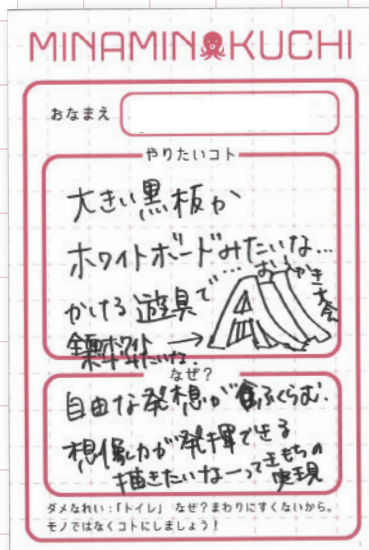 MINAMIN KUCHI
おなまえ
やりたいコト
大きい黒板か
ホワイトボードみたいな…
かける遊具で…おらくがき大会
なぜ?
自由な発想がふくらむ.
想像力が発揮できる
描きたいなーってきもちの
実現
ダメなれい:「トイレ」 なぜ?まわりにすくないから。
モノではなくコトにしましょう!